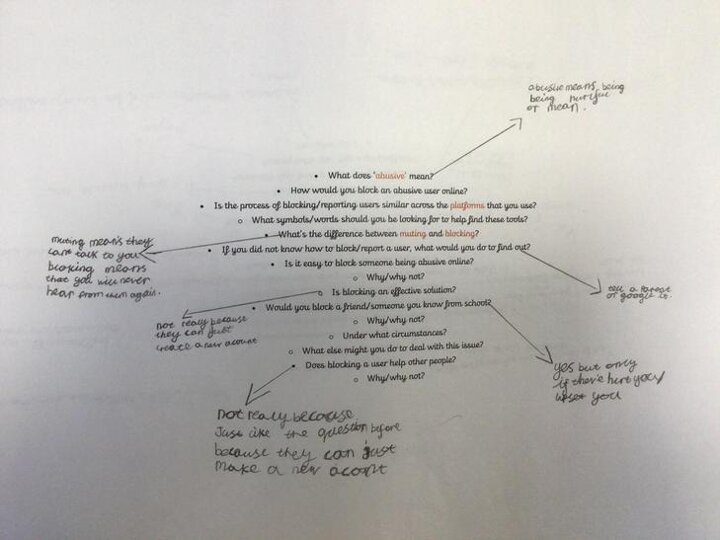 abusive means being
being hurtful
or mean.
• What does 'abusive' mean?
• How would you block an abusive user online?
• Is the process of blocking/reporting users similar across the platforms that you use?
○ What symbols/words should you be looking for to help find these tools?
• What's the difference between muting and blocking?
• If you did not know how to block/report a user, what would you do to find out?
• Is it easy to block someone being abusive online?
○ Why/why not?
○ Is blocking an effective solution?
• Would you block a friend/someone you know from school?
○ Why/why not?
○ Under what circumstances?
○ What else might you do to deal with this issue?
• Does blocking a user help other people?
○ Why/why not?
muting means they
cant talk to you
blocking means
that you will never
hear from them again.
tell a parent
or google it.
not realy because
they can just
create a new acount
yes but only
if there hurt you/
upset you
not realy because
Just like the question before
because they can just
make a new acont